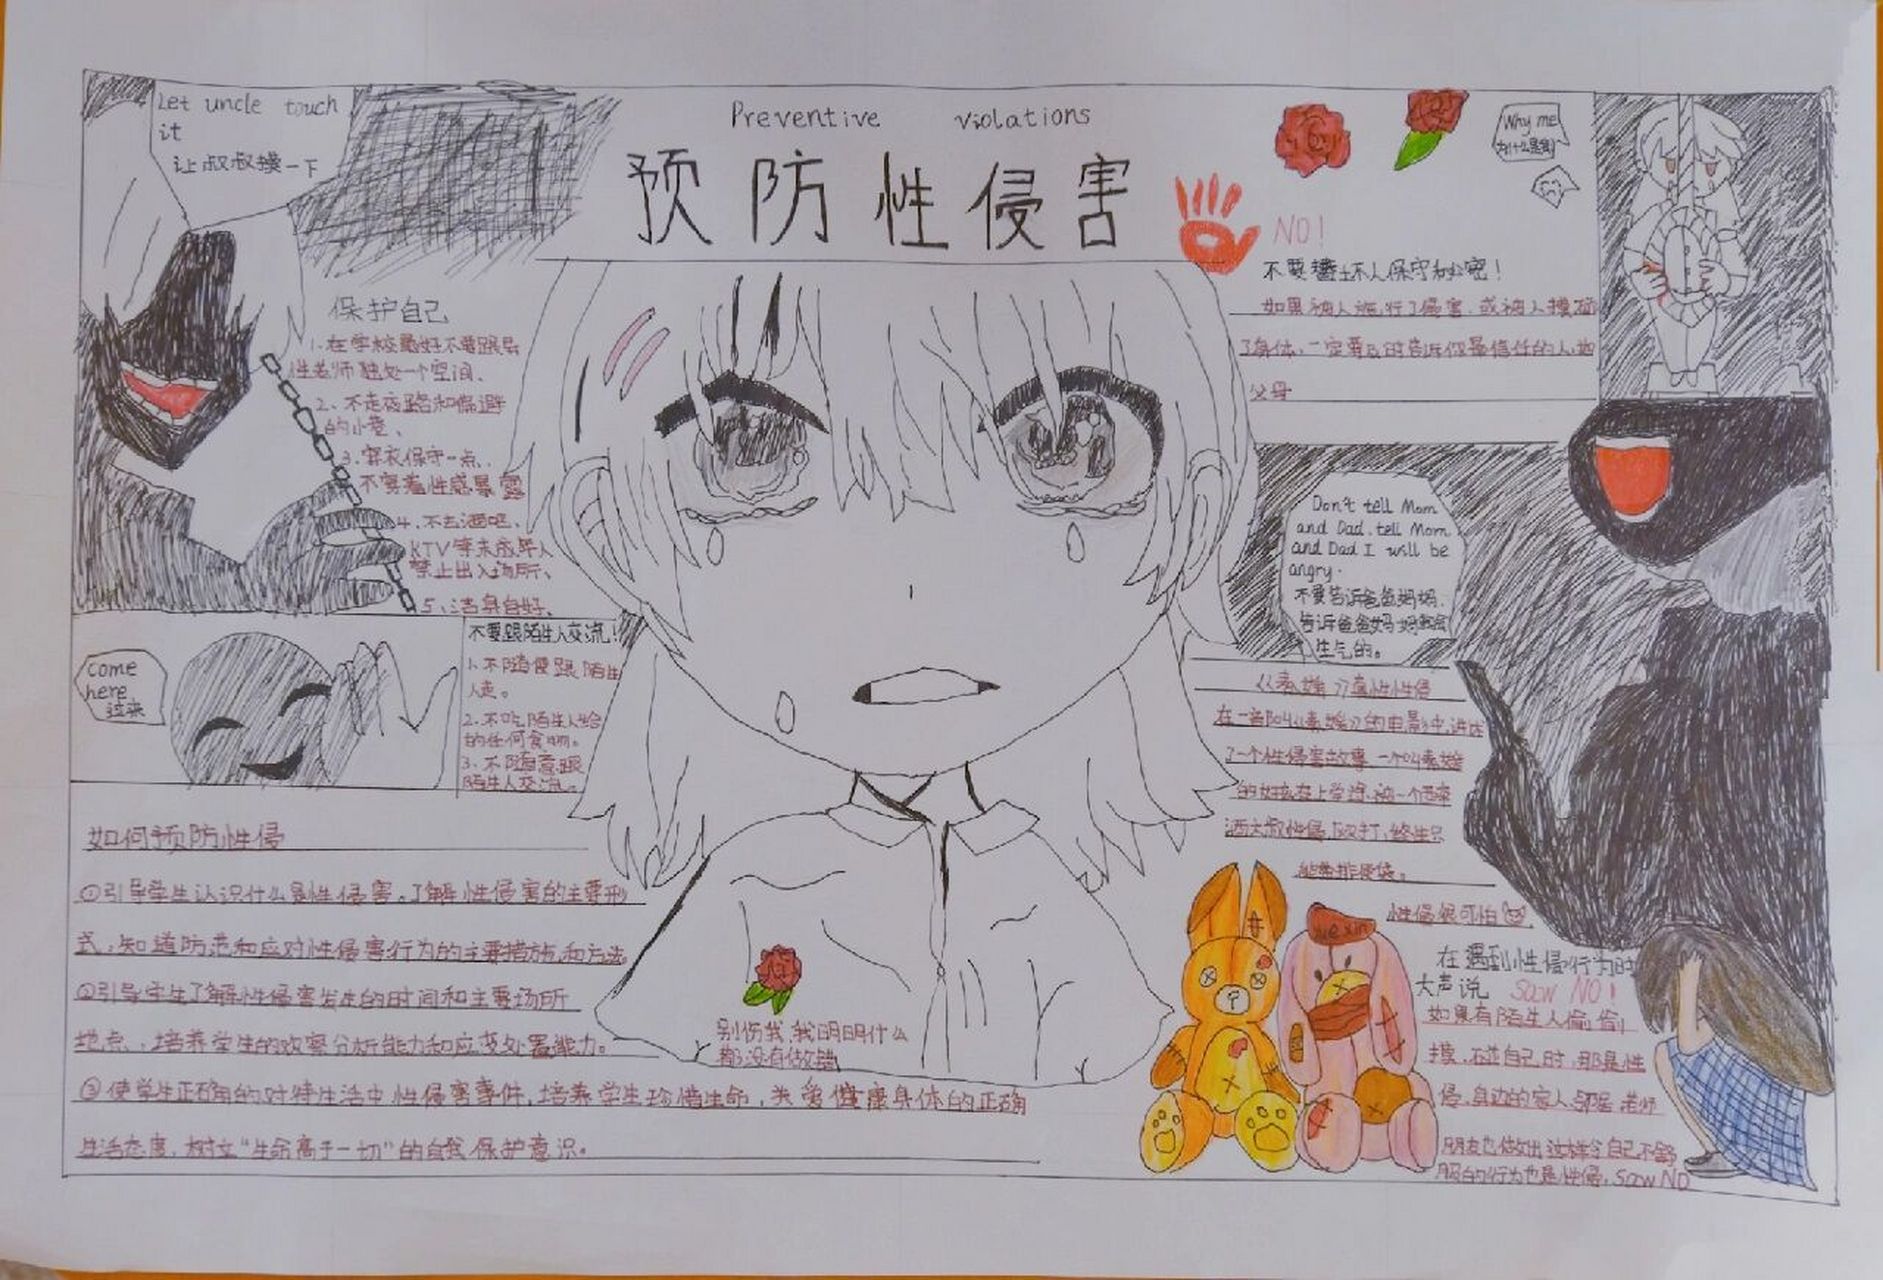 Let uncle touch
it
让叔叔摸一下
Preventive violations
预防性侵害
Why me
为什么是我
NO!
不要替坏人保守秘密!
如果被人施行了侵害,或被人摸碰
了身体,一定要及时告诉你最信任的人,如
父母
保护自己
1.在学校最好不要跟异
性老师独处一个空间、
2、不走夜路和偏避
的小巷、
3.穿衣保守一点、
不穿着性感暴露
4.不去酒吧、
KTV等未成年人
禁止出入场所、
5、洁身自好、
come
here
过来
不要跟陌生人交流!
1.不随便跟陌生
人走。
2.不吃陌生人给
的任何食物。
3、不随意跟
陌生人交流。
Don't tell Mom
and Dad. tell Mom
and Dad I will be
angry.
不要告诉爸爸妈妈.
告诉爸爸妈妈我会
生气的。
《素媛》
性侵
在一部叫《素媛》的电影中,讲述
了一个性侵害故事 一个叫素媛
的女孩在上学途被一个
大叔性侵 殴打,终生只
能带排便袋。
如何预防性侵
①引导学生认识什么是性侵害,了解性侵害的主要形
式,知道防范和应对性侵害行为的主要措施和方法
②引导学生了解性侵害发生的时间和主要场所
地点,培养学生的观察分析能力和应变处置能力。
③使学生正确的对待生活中性侵害事件,培养学生珍惜生命,关爱健康身体的正确
生活态度,树立“生命高于一切”的自我保护意识。
别伤我,我明明什么
都没有做错
xuexin
性侵很可怕
在遇到性侵行为时
大声说 Saow NO!
如果有陌生人偷偷
摸,碰自己时,那是性
侵,身边的家人邻居老师
朋友也做出这样令自己不舒
服的行为也是性侵,Saow NO